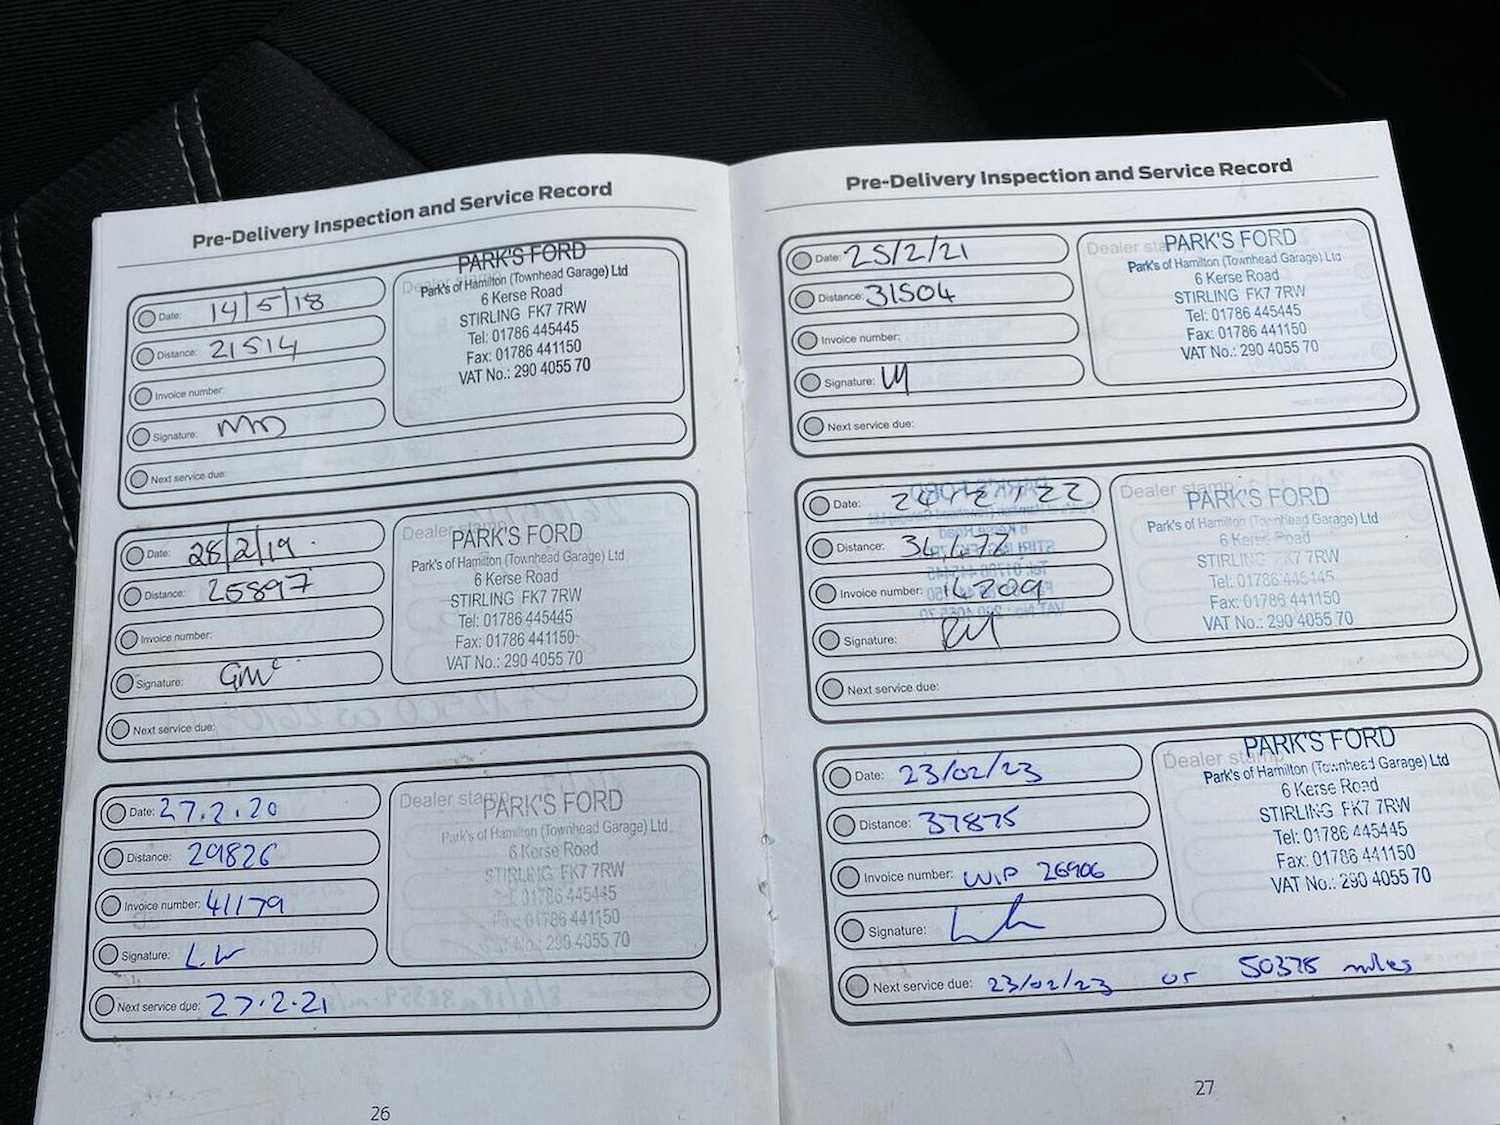 Pre-Delivery Inspection and Service Record
Date: 14/5/18
Distance: 21514
Invoice number:
Signature:
Next service due:
PARK'S FORD
Park's of Hamilton (Townhead Garage) Ltd
6 Kerse Road
STIRLING FK7 7RW
Tel: 01786 445445
Fax: 01786 441150
VAT No.: 290 4055 70
Date: 28/2/19.
Distance: 25897
Invoice number:
Signature: GMc
Next service due:
Dealer stamp
PARK'S FORD
Park's of Hamilton (Townhead Garage) Ltd
6 Kerse Road
STIRLING FK7 7RW
Tel: 01786 445445
Fax: 01786 441150
VAT No.: 290 4055 70
Date: 27.2.20
Distance: 29826
Invoice number: 41179
Signature: L.W
Next service due: 27.2.21
Dealer stamp
PARK'S FORD
Park's of Hamilton (Townhead Garage) Ltd
6 Kerse Road
STIRLING FK7 7RW
Tel: 01786 445445
Fax: 01786 441150
VAT No.: 290 4055 70
26
Pre-Delivery Inspection and Service Record
Date: 25/2/21
Distance: 31504
Invoice number:
Signature:
Next service due:
Dealer stamp
PARK'S FORD
Park's of Hamilton (Townhead Garage) Ltd
6 Kerse Road
STIRLING FK7 7RW
Tel: 01786 445445
Fax: 01786 441150
VAT No.: 290 4055 70
Date: 24/2/22
Distance:
Invoice number:
Signature:
Next service due:
Dealer stamp
PARK'S FORD
Park's of Hamilton (Townhead Garage) Ltd
6 Kerse Road
STIRLING FK7 7RW
Tel: 01786 445445
Fax: 01786 441150
VAT No.: 290 4055 70
Date: 23/02/23
Distance: 37875
Invoice number: WIP 26906
Signature:
Next service due: 23/02/23 or 50375 miles
Dealer stamp
PARK'S FORD
Park's of Hamilton (Townhead Garage) Ltd
6 Kerse Road
STIRLING FK7 7RW
Tel: 01786 445445
Fax: 01786 441150
VAT No.: 290 4055 70
27